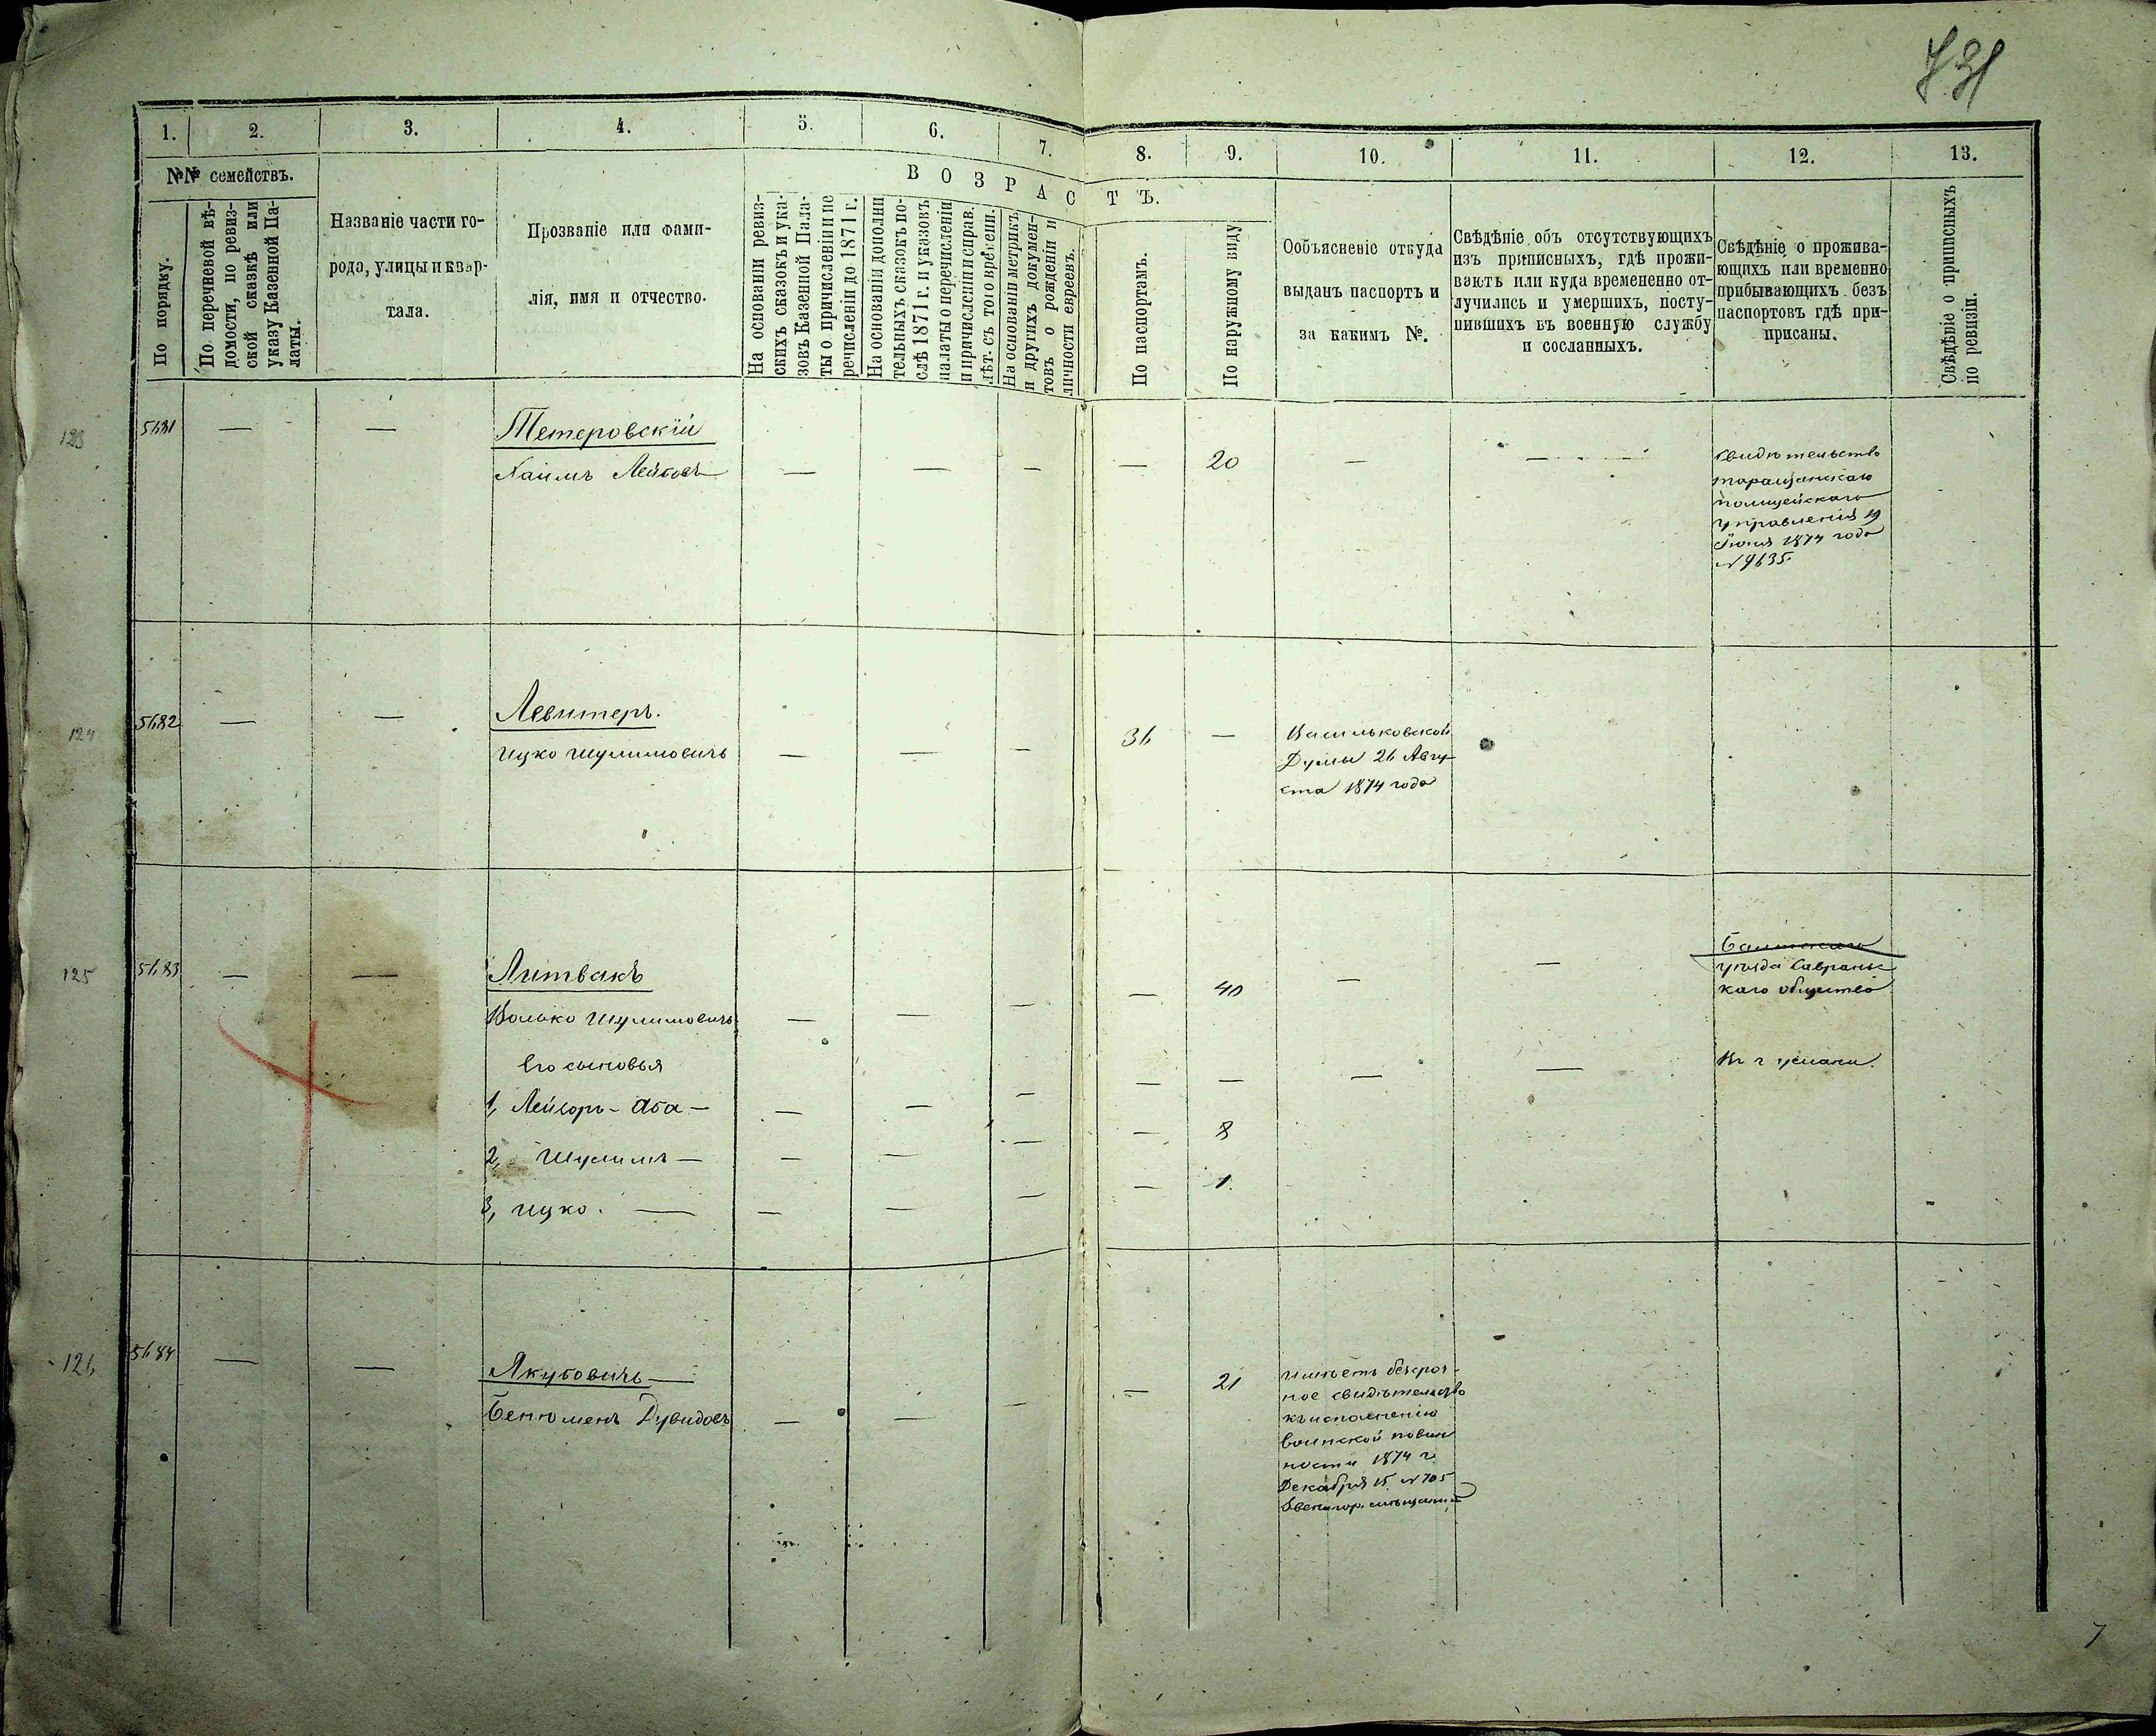 731
1.
2.
3.
4.
5.
6.
7.
8.
9.
10.
11.
12.
13.
№№ семействъ.
По порядку.
По перечневой вѣ-
домости, по ревиз-
ской сказкѣ или
указу Казенной Па-
латы.
Названіе части го-
рода, улицы и квар-
тала.
Прозваніе или Фами-
лія, имя и отчество.
ВОЗРАСТЪ.
На основаніи ревиз-
скихъ сказокъ и ука-
зовъ Казенной Пала-
ты о причисленіи и пе
речисленіи до 1871 г.
На основаніи дополни
тельныхъ сказокъ по-
слѣ 1871 г. и указовъ
палаты о перечисленіи
и причисленіи исправ.
лѣт. съ того времени.
На основаніи метрикъ
и другихъ докумен-
товъ о рожденіи и
личности евреевъ.
По паспортамъ.
По наружному виду
Ообъясненіе откуда
выданъ паспортъ и
за какимъ №.
Свѣдѣніе объ отсутствующихъ
изъ приписныхъ, гдѣ прожи-
ваютъ или куда временно от-
лучились и умершихъ, посту-
пившихъ въ военную службу
и сосланныхъ.
Свѣдѣніе о прожива-
ющихъ или временно
прибывающихъ безъ
паспортовъ гдѣ при-
приcаны.
Свѣдѣніе о приписныхъ
по ревизіи.
123
5681 — —
Тетеровскій
Хаимъ Лейбовъ — — — — 20 — —
Свидѣтельство
таращанскаго
полицейскаго
управленія 19
Іюня 1874 года
№ 4635.
124
5682 — —
Левитеръ.
Ицко Шулимовичъ — — — 36 —
Васильковской
Думы 26 Авгу-
ста 1874 года
125
5683 — —
Литвакъ
Волько Шулимовичъ — — — — 40 — —
Балтскаго
уѣзда Саврань-
каго общества
Его сыновья
1, Лейзоръ-Аба — — — — — — — —
Въ г Умани.
2, Шулимъ — — — — — 8
3, Ицко. — — — — — 1.
126
5684 — —
Якубовичъ —
Бенюменъ Дувидовъ — — — — 21
Имѣетъ безсроч-
ное свидѣтельство
къ исполненію
воинской повин
ности 1874 г.
Декабря 15 № 705
Звенигор. мѣщанин